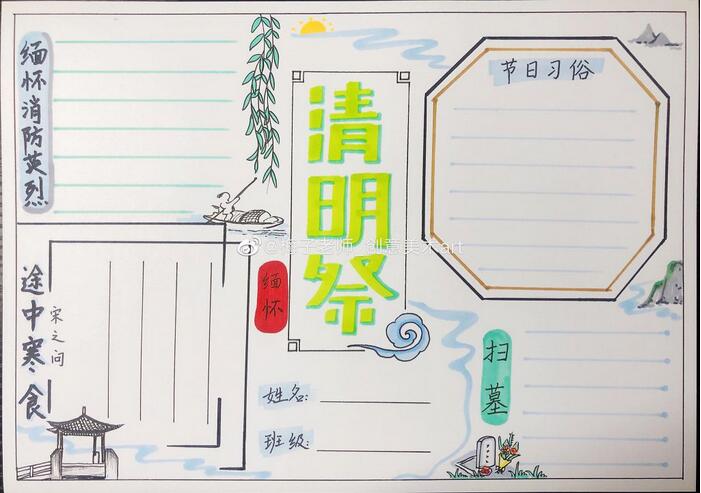 缅怀消防英烈
清明祭
节日习俗
@梅子老师_创意美术art
缅怀
途中寒食
宋之问
扫墓
姓名:
班级: